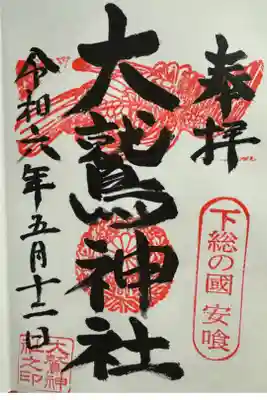 奉拝
下総の國 安喰
大鷲神社
大鷲神
社之印
令和六年五月十二日